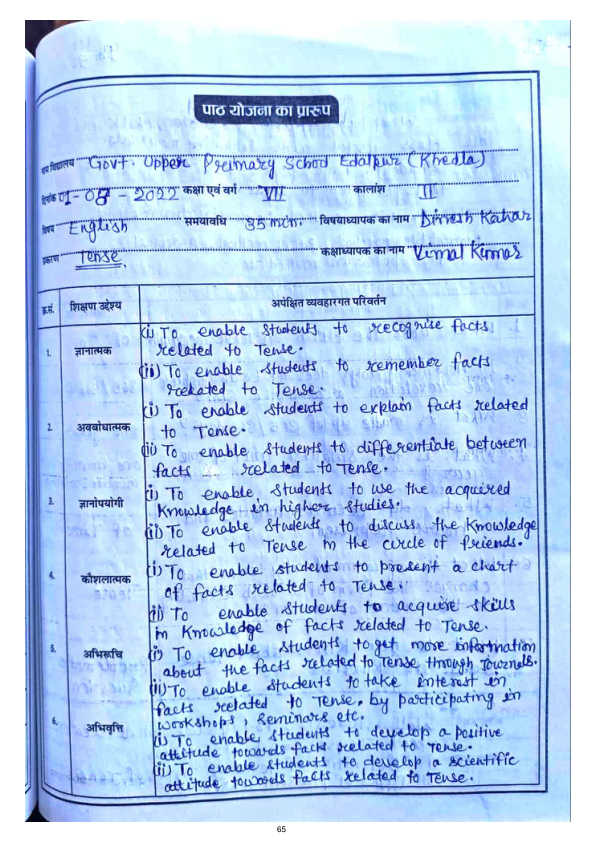 पाठ योजना का प्रारूप
विद्यालय Govt. Upper Preimary School Edalpur (Khedla)
दिनांक 01-08-2022 कक्षा एवं वर्ग VII कालांश II
English समयावधि 35 min. विषयाध्यापक का नाम
Tense कक्षाध्यापक का नाम Vimal Kumar
क्र.सं. शिक्षण उद्देश्य अपेक्षित व्यवहारगत परिवर्तन
1. ज्ञानात्मक
(i) To enable students to recognise facts
related to Tense.
(ii) To enable students to remember facts
rekated to Tense.
2. अवबोधात्मक
(i) To enable students to explain facts related
to Tense.
(ii) To enable students to differentiate between
facts related to Tense.
3. ज्ञानोपयोगी
(i) To enable students to use the acquired
Knowledge in higher studies.
(ii) To enable students to discuss the Knowledge
related to Tense in the circle of friends.
4. कौशलात्मक
(i) To enable students to present a chart
of facts related to Tense.
(ii) To enable students to acquire skills
in Knowledge of facts related to Tense.
5. अभिरूचि
(i) To enable students to get more information
about the facts related to Tense through Journels.
(ii) To enable students to take interest in
facts related to Tense, by participating in
workshops, seminars etc.
6. अभिवृत्ति
(i) To enable students to develop a positive
attitude towards facts related to Tense.
(ii) To enable students to develop a scientific
attitude towards facts related to Tense.
65